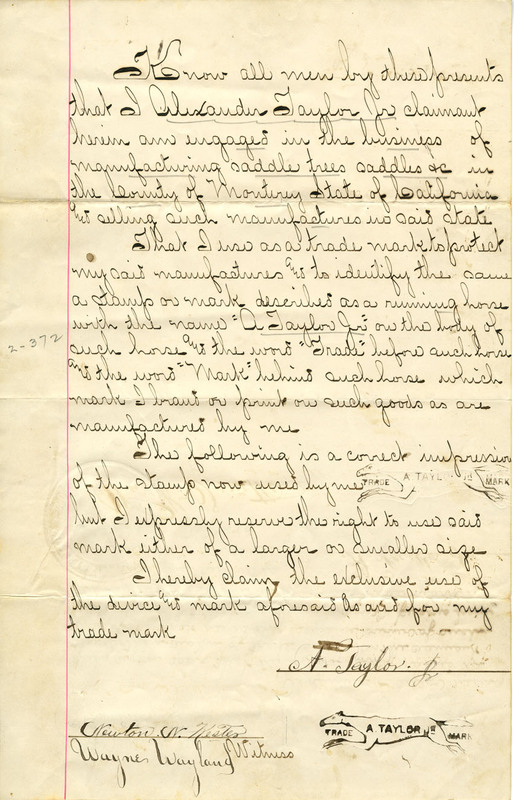 Know all men by these presents
that I Alexander Taylor Jr claimant
herein am engaged in the business of
manufacturing saddle trees saddles &c in
the County of Monterey State of California
and selling such manufactures in said state
That I use as a trade mark to protect
my said manufactures and to identify the same
a stamp or mark described as a running horse
with the name "A Taylor Jr" on the body of
such horse and the word "Trade" before such horse
and the word "Mark" behind such horse which
mark I brand or print on such goods as are
manufactured by me
The following is a correct impression
of the stamp now used by me TRADE A TAYLOR JR MARK
but I expressly reserve the right to use said
mark either of a larger or smaller size
I hereby claim the exclusive use of
the device and mark aforesaid as and for my
trade mark
A. Taylor Jr
2-372
Newton N.
Wayne Wayland Witness
TRADE A. TAYLOR JR MARK